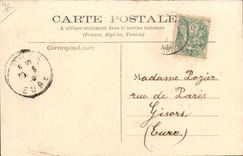 CARTE POSTALE
A utiliser seulement dans le service intérieur
(France, Algérie, Tunisie)
Correspondance
EURE
Madame Pozier
rue de Paris
Gisors
(Eure)